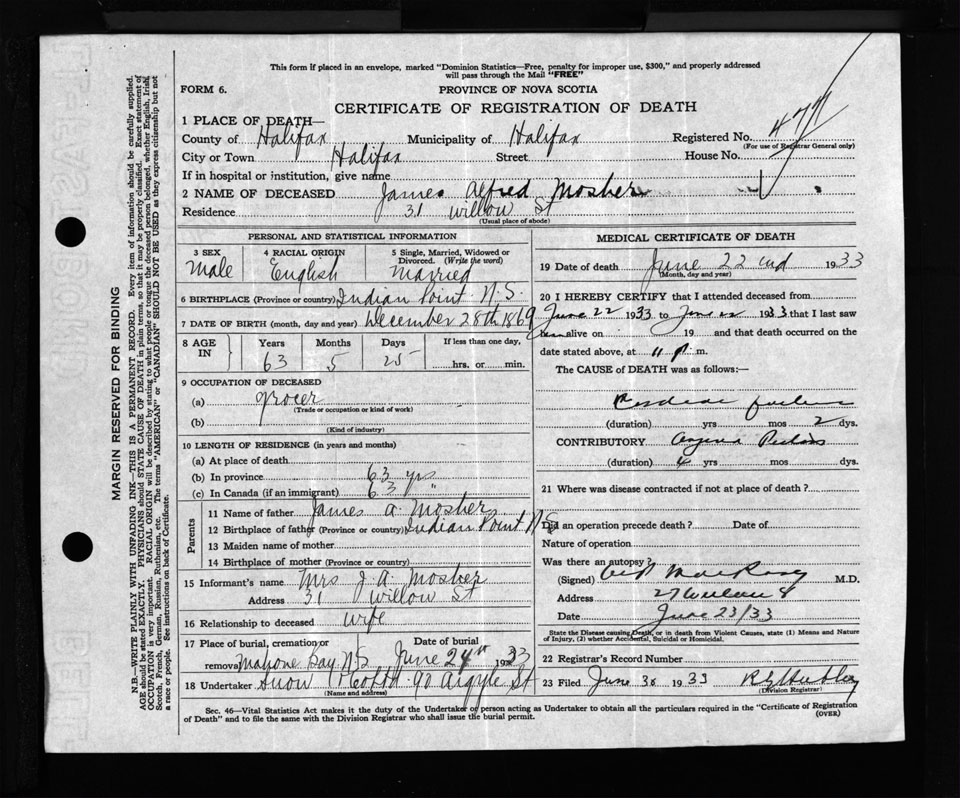 This form if placed in an envelope, marked "Dominion Statistics—Free, penalty for improper use, $300," and properly addressed
will pass through the Mail "FREE"
FORM 6.
PROVINCE OF NOVA SCOTIA
CERTIFICATE OF REGISTRATION OF DEATH
1 PLACE OF DEATH—
County of Halifax Municipality of Halifax Registered No. 477
(For use of Registrar General only)
City or Town Halifax Street House No.
If in hospital or institution, give name
2 NAME OF DECEASED James Alfred Mosher
Residence 31 Willow St
(Usual place of abode)
PERSONAL AND STATISTICAL INFORMATION
3 SEX 4 RACIAL ORIGIN 5 Single, Married, Widowed or Divorced. (Write the word)
Male English Married
6 BIRTHPLACE (Province or country) Indian Point N.S.
7 DATE OF BIRTH (month, day and year) December 28th 1869
8 AGE IN Years Months Days If less than one day,
63 5 25 hrs. or min.
9 OCCUPATION OF DECEASED
(a) grocer
(Trade or occupation or kind of work)
(b)
(Kind of industry)
10 LENGTH OF RESIDENCE (in years and months)
(a) At place of death
(b) In province 63 yrs
(c) In Canada (if an immigrant) 63 "
Parents
11 Name of father James A. Mosher
12 Birthplace of father (Province or country) Indian Point N.S
13 Maiden name of mother
14 Birthplace of mother (Province or country)
15 Informant's name Mrs J. A. Mosher
Address 31 Willow St
16 Relationship to deceased wife
17 Place of burial, cremation or removal Mahone Bay N S Date of burial June 24th 1933
18 Undertaker Snow & Co Ltd. 90 Argyle St
(Name and address)
MEDICAL CERTIFICATE OF DEATH
19 Date of death June 22nd 1933
(Month, day and year)
20 I HEREBY CERTIFY that I attended deceased from
June 22 1933 to June 22 1933 that I last saw
him alive on 19 and that death occurred on
date stated above, at 11 P m.
The CAUSE of DEATH was as follows:—
Cardiac failure
(duration) yrs mos 2 dys.
CONTRIBUTORY Angina Pectoris
(duration) 4 yrs mos dys.
21 Where was disease contracted if not at place of death?
Did an operation precede death? Date of
Nature of operation
Was there an autopsy?
(Signed) M.D.
Address
Date June 23/33
State the Disease causing Death, or in death from Violent Causes, state (1) Means and Nature
of Injury, (2) whether Accidental, Suicidal or Homicidal.
22 Registrar's Record Number
23 Filed June 30 1933
(Division Registrar)
Sec. 46—Vital Statistics Act makes it the duty of the Undertaker or person acting as Undertaker to obtain all the particulars required in the "Certificate of Registration
of Death" and to file the same with the Division Registrar who shall issue the burial permit.
(OVER)
MARGIN RESERVED FOR BINDING
N.B.—WRITE PLAINLY WITH UNFADING INK—THIS IS A PERMANENT RECORD. Every item of information should be carefully supplied.
AGE should be stated EXACTLY. PHYSICIANS should STATE CAUSE OF DEATH in plain terms, so that it may be properly classified. Exact statement of
OCCUPATION is very important. RACIAL ORIGIN will be described by stating to what people or tongue the deceased person belonged, whether English, Irish,
Scotch, French, German, Russian, Ruthenian, etc. The terms "AMERICAN" or "CANADIAN" SHOULD NOT BE USED as they express citizenship but not
a race or people. See instructions on back of Certificate.